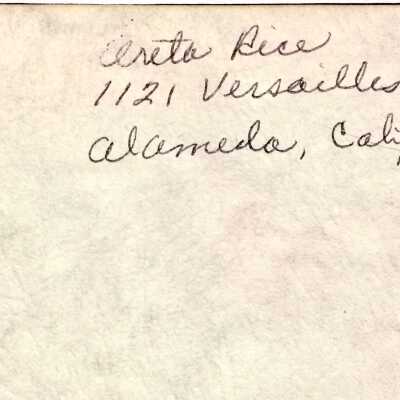 Areta Rice
1121 Versailles
Alameda, Cali